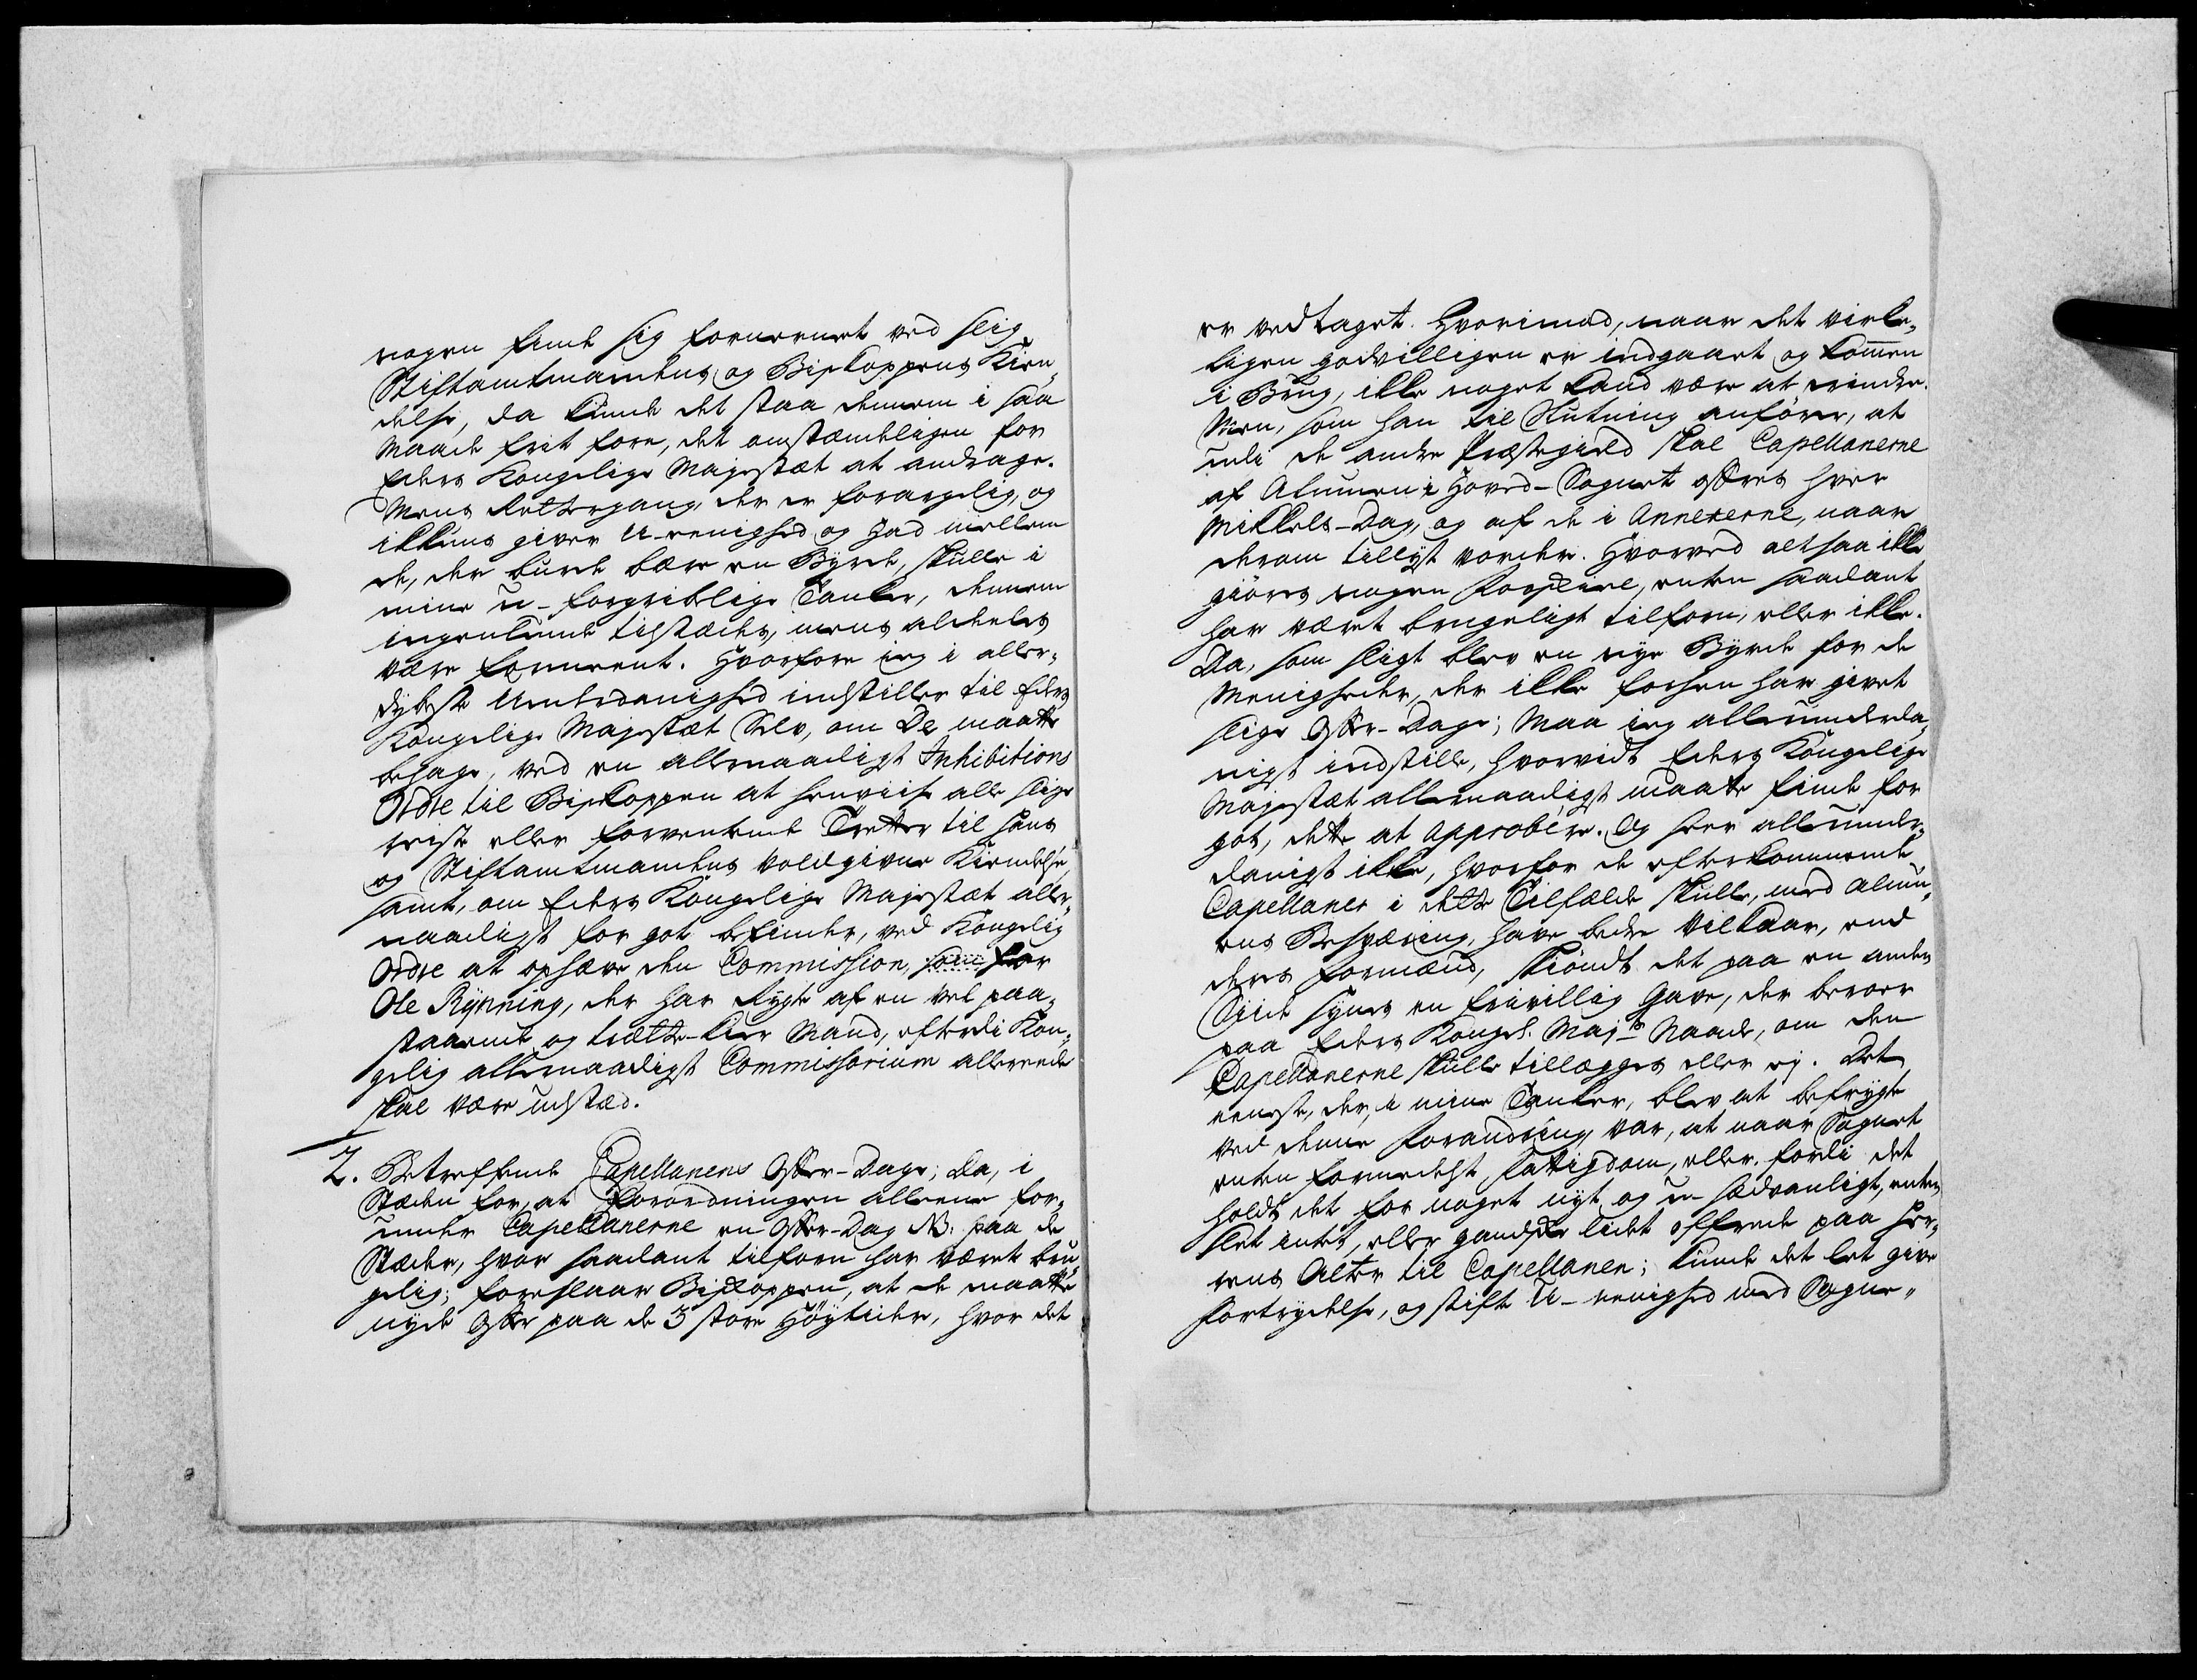 nogen fandt sig fornermet ved slig
Stiftamtmandens og Biskoppens Kien„
delse, da kunde det staa dennem i saa
Maade frit fore, det omstændeligen for
Eders Kongelige Majestæt at andrage.
Mens Rettergang, der er forargelig, og
ikkuns giver U-eenighed og Had imellem
de, der burde bære en Byrde, skulle i
mine u-forgribelige Tanker, dennem
ingenlunde tilstædes, mens aldeeles
være formeent. Hvorfore jeg i aller„
dybeste Underdanighed indstiller til Eders
Kongelige Majestæt Selv, om De maatte
behage, ved en allernaadigst Inhibitions
Ordre til Biskoppen at henviise alle slige
reiste eller forventende Tretter til hans
og Stiftamtmandens voldgivne Kiendelse,
samt, om Eders Kongelige Majestæt aller„
naadigst for got befinder, ved Kongelig
Ordre at ophæve den Commission, som for
Ole Rynning, der har Rygte af en vel paa„
staaende og trætte-kier Mand, efterdi Kon„
gelig allernaadigst Commissorium allereede
skal være udstæd.
2. Betreffende Capellanens Offer-Dage; Da, i
Stæden for, at Forordningen alleene for„
under Capellanerne en Offer-Dag NB. paa de
Stæder, hvor saadant tilforn har været bru„
gelig; foreslaar Biskoppen, at de maatte
nyde Offer paa de 3 store Höytider, hvor det
er vedtaget. Hvorimod, naar det virke„
ligen godvilligen er indgaaet og kommen
i Brug, ikke noget kand være at erindre.
Men, som han til Slutning anfører, at
udi de andre Præstegield skal Capellanerne
af Almuen i Hoved-Sognet offres hver
Mikkels-Dag, og af de i Annexerne, naar
derom tillyst vorder. Hvorved altsaa ikke
giöres nogen Forskiel, enten saadant
har været brugeligt tilforn, eller ikke.
Da, som sligt blev en nye Byrde for de
Menigheder, der ikke forhen har givet
slige Offer-Dage; Maa jeg allerunderda„
nigst indstille, hvorvidt Eders Kongelige
Majestæt allernaadigst maatte finde for
got, dette at approbére. Og seer allerunder„
danigst ikke, hvorfor de efterkommende
Capellaner i dette Tilfælde skulle, med Almu„
ens Besværing, have bedre Vilkaar, end
deres Formænd, skiöndt det paa en anden
Siide synes en frivillig Gave, der beroer
paa Eders Kongel. Maj.ts Naade, om den
Capellanerne skulle tillægges eller ej. Det
eeneste, der, i mine Tanker, blev at befrygte
ved denne Forandring, var, at naar Sognet
enten formedelst Fattigdom, eller fordi det
holdt det for noget nyt og u-sædvanligt, enten
slet intet, eller gandske lidet offrede paa Her„
rens Alter til Capellanen; kunde det let give
Fortrydelse, og stifte U-eenighed med Sogne„